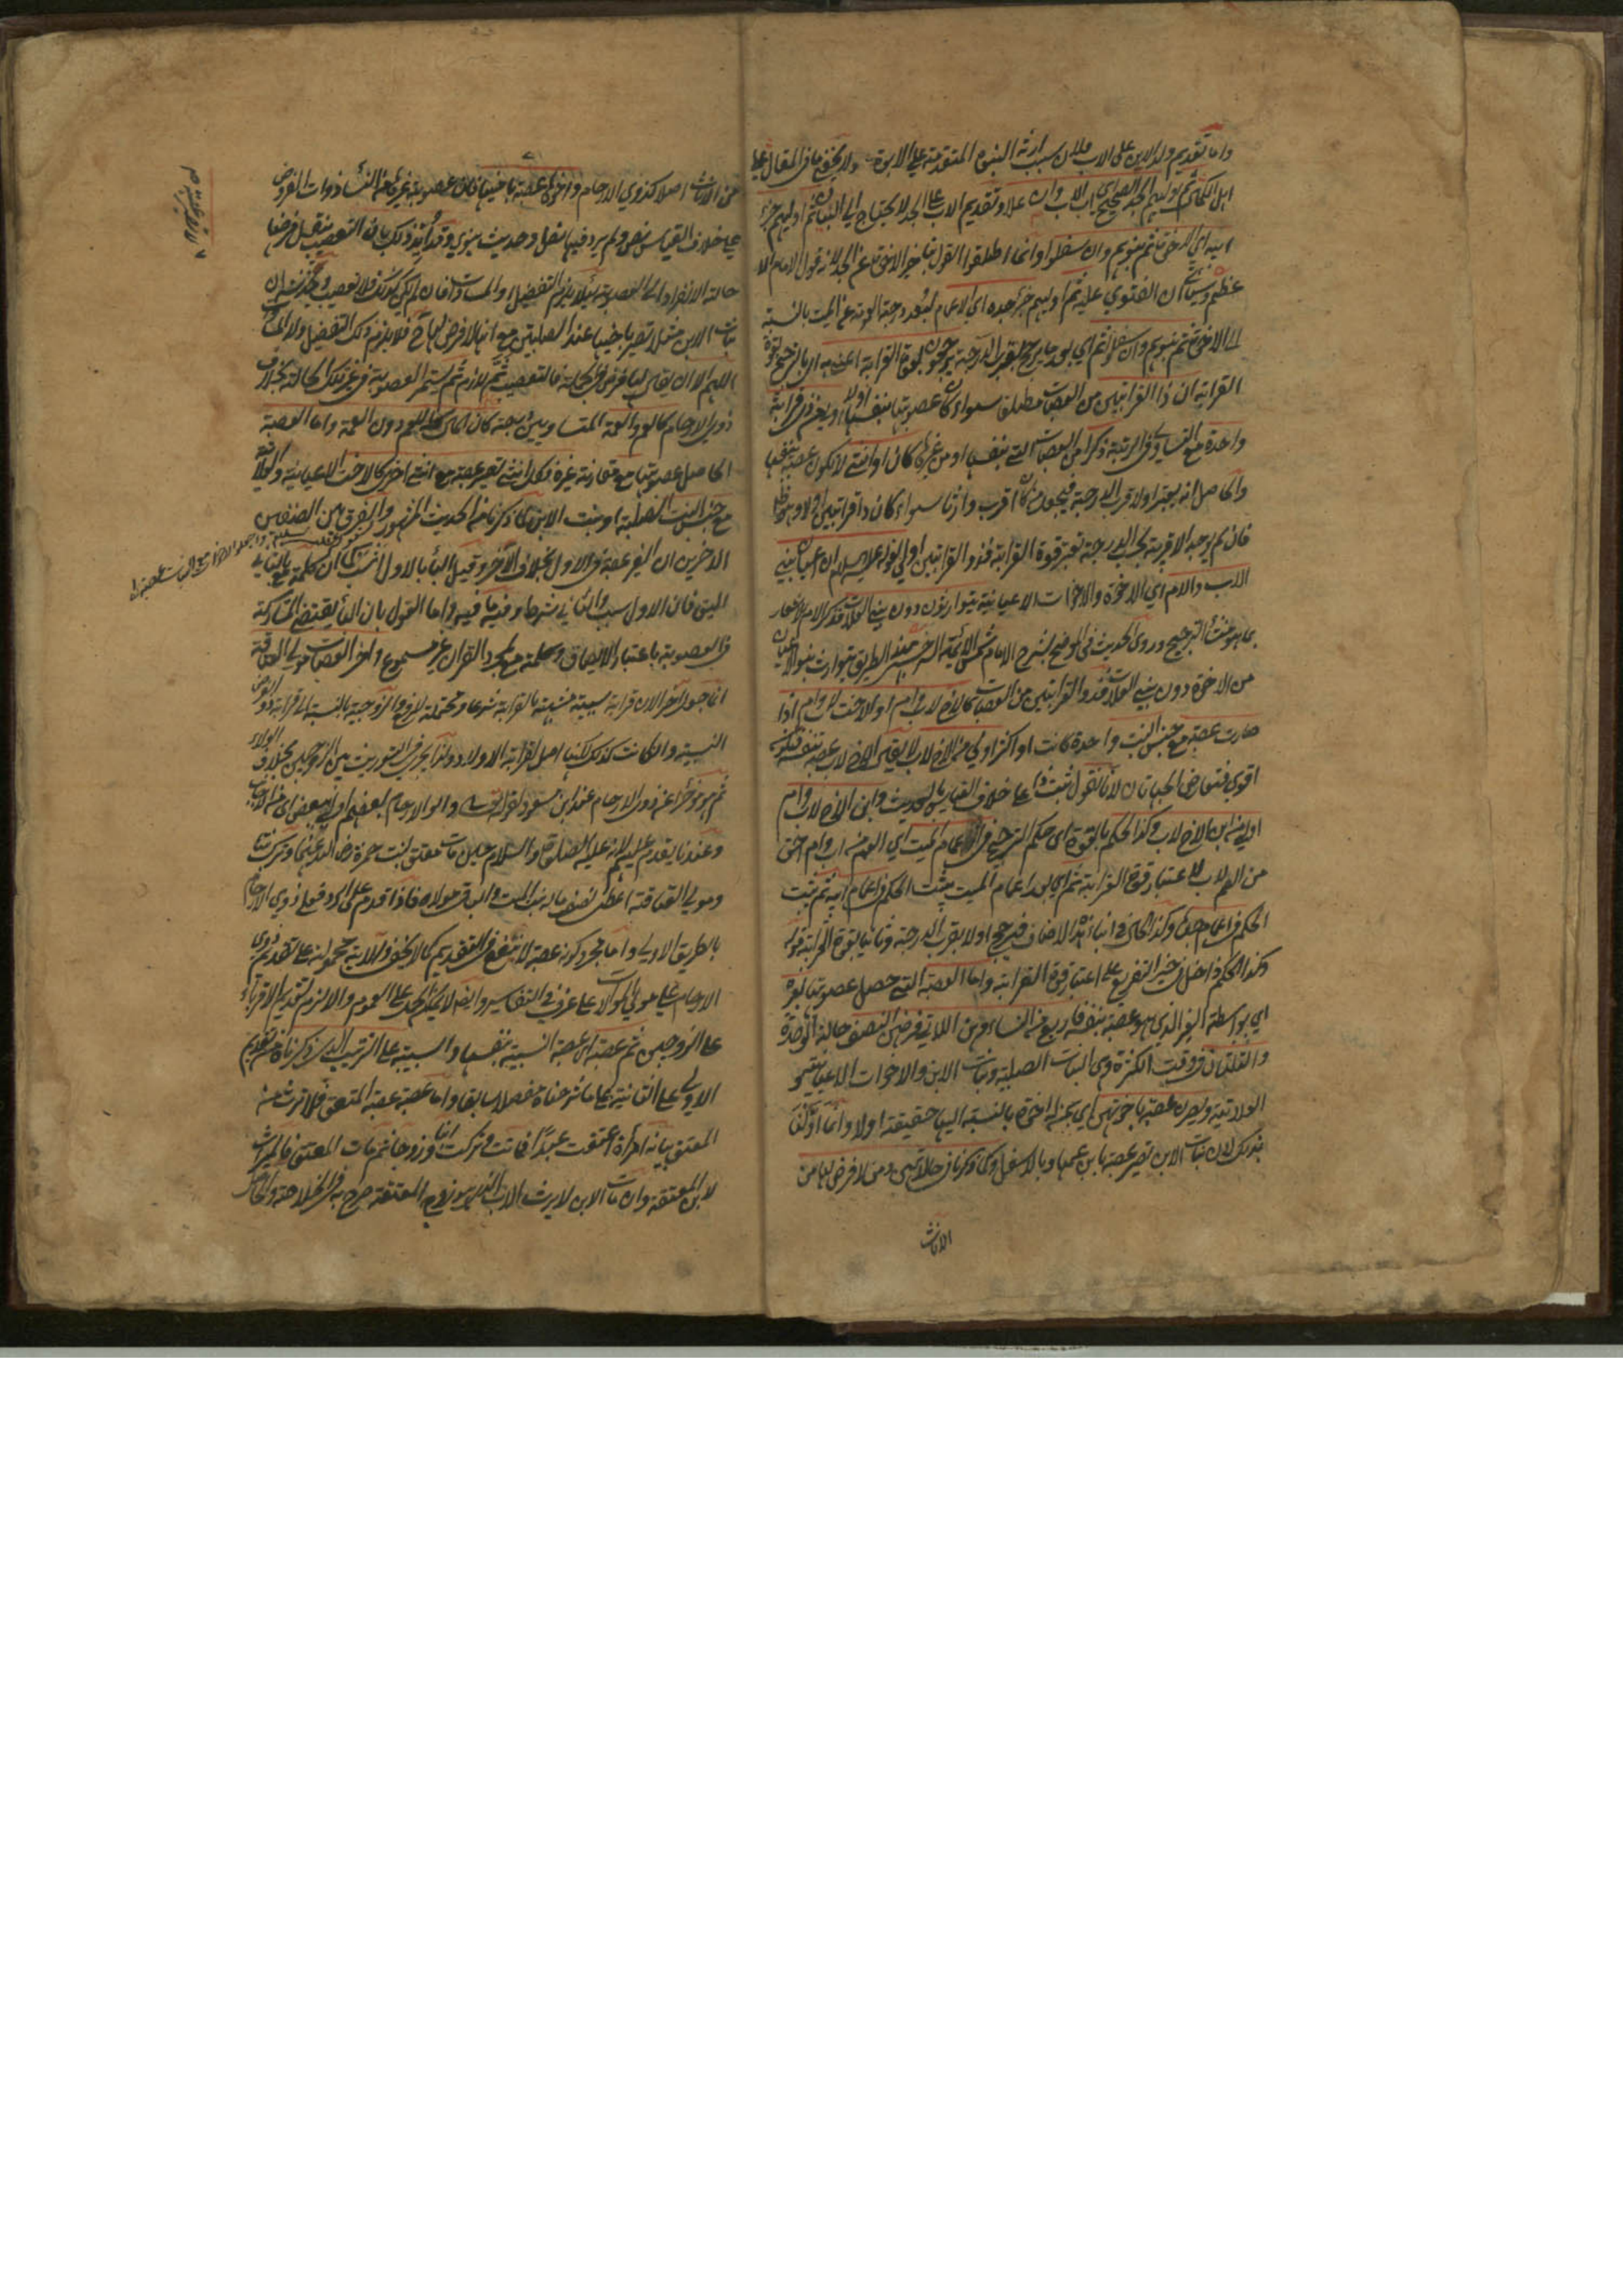 واما تقديم ولد الابن على الاب فلان سبب ارثه البنوة المتقدمة على الابوة ولا يخفى ما فى المقال على
اهل الكمال ثم اوليهم الجد الصحيح اى اب الاب وان علا وتقديم الاب على الجد لا يحتاج الى البيان ثم اوليهم جزء
ابيه اى الاخوة ثم بنوهم وان سفلوا وانما اطلقوا القول بتاخير الاخوة عن الجد لانه قول الامام الا
عظم وسيأتى ان الفتوى عليه ثم اوليهم جزء جده اى الاعمام لبعد درجة العمومة عن الميت بالنسبة
الى الاخوة ثم بنوهم وان سفلوا ثم اى بعد ما يرجح بقرب الدرجة يرجحون بقوة القرابة اعنى به ان بالترجيح بقوة
القرابة ان ذا القرابتين من العصبات مطلقا سواء كان عصوبتها بنفسها اولا اولى من ذى قرابة
واحدة مع التساوى فى المرتبة ذكرا من العصبات التى بنفسها او من غيره كان او انثى لا تكون عصبة بنفسها
والحاصل انه يعتبر اولا قرب الدرجة فيجعل من كان اقرب وارثا سواء كان ذا قرابتين اولا
فان لم يوجد الاقربية بحسب الدرجة تعتبر قوة القرابة فذو القرابتين اولى لقوله عليه السلام ان اعيان بنى
الاب والام اى الاخوة والاخوات الاعيانية يتوارثون دون بنى العلات فذكر الام لاشعار
بما هو منشأ الترجيح وروى الحديث فى الموضح لشرح الامام شمس الائمة السرخسى بهذا الطريق يتوارث بنو الاعيان
من الاخوة دون بنى العلات فذو القرابتين من العصبات كالاخ لاب وام او الاخت لاب وام اذا
صارت عصبة مع جنس البنت واحدة كانت او اكثر اولى من الاخ لاب لا يقال الاخ لاب عصبة بنفسه فتكون
اقوى فتعارض الجهتان لانا نقول ثبت ذا على خلاف القياس بالحديث وابن الاخ لاب وام
اولى من ابن الاخ لاب وكذا الحكم بالقوة اى حكم الترجيح فى اعمام الميت اى العم من اب وام احق
من العم لاب لاعتبار قوة القرابة ثم اى بعد اعمام الميت يثبت الحكم فى اعمام ابيه ثم يثبت
الحكم فى اعمام جده وكذا الحال فى ابناء هذه الاصناف فيرجح اولا بقرب الدرجة وثانيا بقوة القرابة قوله
وكذا الحكم داخل فى حيز التفريع على اعتبار قوة القرابة واما العصبة التى حصل عصوبتها بغيره
اى بواسطة الغير الذى هو عصبة بنفسه فاربع من النساء وهن اللاتى فرضهن النصف حالة الوحدة
والثلثان فى وقت الكثرة وهى البنات الصلبية وبنات الابن والاخوات الاعيانية
العلاتية ويصرن عصبة باخوتهن اى بمنزلة اخوة بالنسبة اليها حقيقة اولا وانما اولنا
بذلك لان بنات الابن تصير عصبة بابن عمها وبالاسفل وكما ذكرنا فى حالاتهن ومن لا فرض لها من
الاناث
من الاناث اصلا كذوى الارحام واخوها عصبة باخيها فان عصوبة غيره من النساء ذوات الفروض
على خلاف القياس نص ولم يرد فيها نقل وحديث نبوى وقد ايد ذلك بان التعصيب بنقل فرضها
حالة الانفراد الى العصوبة لئلا يلزم التفضيل او المساوات فان لم يكن كذلك فلا تعصيب
بنات الابن مثلا تصير باخيها عند الصلبيتين مع انها لا فرض لها فلا يلزم ذلك التفضيل ولا المساوات
اللهم الا ان يقال لها فرض فى الجملة فالتعصيب ثم لازم ثم يستمر العصوبة فى غير تلك الحالة بخلاف
ذوى الارحام كالعم والعمة المتساويين درجة كان المال كله للعم دون العمة واما العصبة
الحاصل عصوبتها مع مقارنة غيره فكل انثى تصير عصبة مع انثى اخرى كالاخت الاعيانية والعلاتية
مع جنس البنت الصلبية او بنت الابن كما ذكرنا من الحديث المشهور والفرق بين الصنفين
الاخيرين ان الغير عصبة فى الاول بخلاف الآخر وقيل الباء بالاول انسب كما ان كلمة مع بالثانى
اليق فان الاول سبب والثانى شرط وفيه ما فيه واما القول بان الباء يقتضى المشاركة
فى العصوبة باعتبار الالصاق وكلمة مع لمجرد القران غير مسموع واخر العصبات مولى العتاقة
انما جعل آخرا لان قرابة سببية مشبهة بالقرابة شرعا ومحتملة للزوج والزوجية بالنسبة الى قرابة ذوى الفروض
النسبية وان كانت كذلك لكنها اصل لقرابة الاولاد ولذا يجرى التوريث بين الزوجين بخلاف الولاء
ثم هو مؤخر عن ذوى الارحام عند ابن مسعود لقوله تعالى واولو الارحام بعضهم اولى ببعض
وعندنا يقدم عليهم لانه عليه الصلوة والسلام حين مات معتق بنت حمزة رضى الله عنها وترك بنتا
ومولى العتاقة اعطى نصف ماله بنت الميت والباقى مولاه فاذا قدم على الرد فعلى ذوى الارحام
بالطريق الاولى واما مجرد كونه عصبة لا ينفع فى التقديم كما لا يخفى والآية محمولة على تقديم ذوى
الارحام على مولى الموالات على ما عرف فى التفاسير وايضا لا يمكن الحمل على العموم والا لزم تقديم الاقرباء
على الزوجين ثم عصبة اى عصبة النسبية بنفسها والسببية على الترتيب الذى ذكرناه من تقديم
الاولى على الثانية كما شرحناه مفصلا سابقا واما عصبة عصبة المعتق فلا ترث من
المعتق بيانه امرأة اعتقت عبدا فماتت وتركت ابنا وزوجا ثم مات المعتق فالميراث
لابن المعتقة وان مات الابن لا يرث الاب الذى هو زوج المعتقة صرح به فى الخلاصة والحاصل